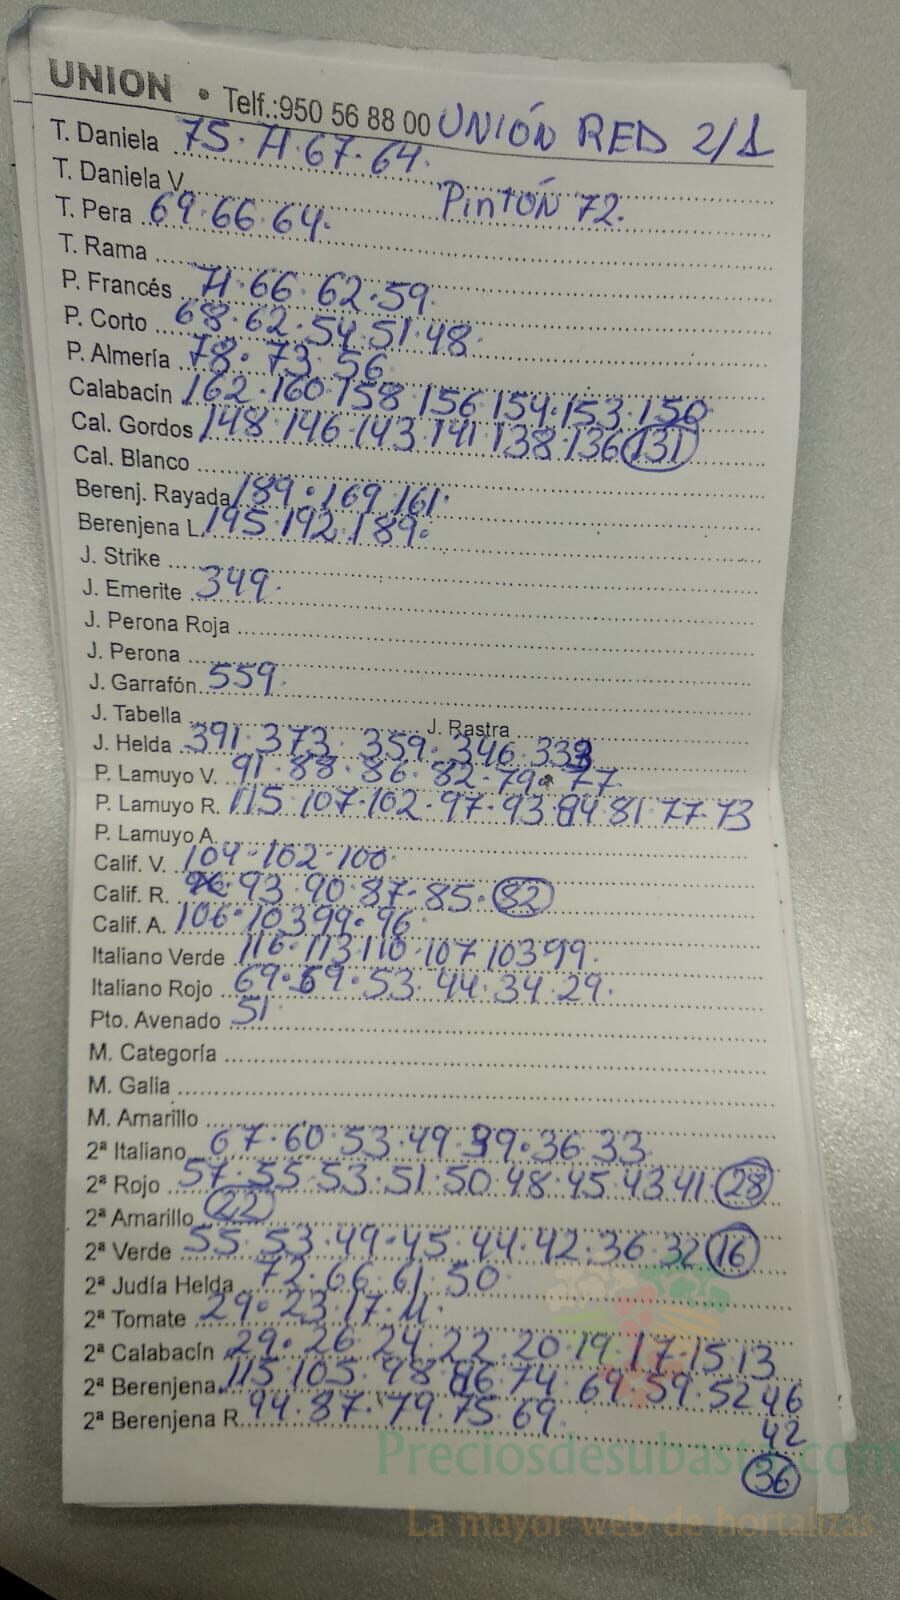 UNION • Telf.:950 56 88 00 UNIÓN RED 2/1
T. Daniela 75. 71. 67. 64.
T. Daniela V. Pintón 72.
T. Pera 69. 66. 64.
T. Rama
P. Francés 71. 66. 62. 59.
P. Corto 68. 62. 54. 51. 48.
P. Almería 78. 73. 56
Calabacín 162. 160. 158 156 154. 153. 150
Cal. Gordos 148. 146. 143. 141 138. 136 131
Cal. Blanco
Berenj. Rayada 189. 169. 161.
Berenjena L. 195. 192. 189.
J. Strike
J. Emerite 349.
J. Perona Roja
J. Perona
J. Garrafón 559.
J. Tabella J. Rastra
J. Helda 391. 373. 359. 346. 333
P. Lamuyo V. 91. 88. 86. 82. 79. 77.
P. Lamuyo R. 115. 107. 102. 97. 93 84. 81. 77. 73
P. Lamuyo A.
Calif. V. 104. 102. 100.
Calif. R. 93. 90. 87. 85. 82
Calif. A. 106. 103 99. 96.
Italiano Verde 116. 113. 110. 107 103 99.
Italiano Rojo 69. 59. 53. 44. 34. 29.
Pto. Avenado 51.
M. Categoría
M. Galia
M. Amarillo
2ª Italiano 67. 60. 53. 49. 39. 36. 33
2ª Rojo 57. 55. 53. 51. 50. 48. 45. 43 41. 28
2ª Amarillo 22
2ª Verde 55. 53. 49. 45. 44. 42. 36. 32 16
2ª Judía Helda 72. 66. 61. 50.
2ª Tomate 29. 23. 17. 11.
2ª Calabacín 29. 26. 24. 22. 20. 19. 17. 15. 13
2ª Berenjena 115 105. 98. 86. 74. 69. 59. 52 46
42
2ª Berenjena R. 94. 87. 79. 75. 69.
36
Preciosdesubasta.com
La mayor web de hortalizas